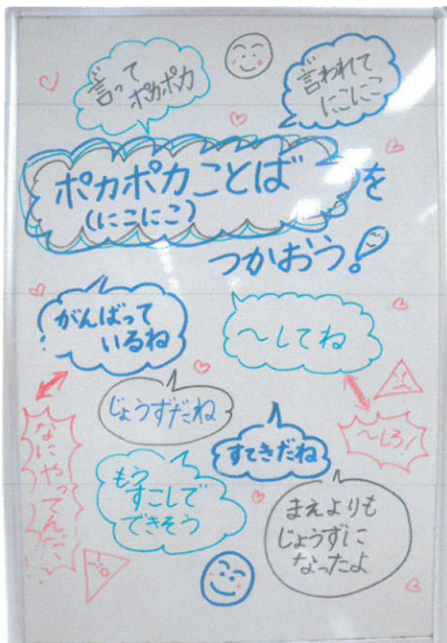 言って
ポカポカ
言われて
にこにこ
ポカポカことばを
(にこにこ)
つかおう!
がんばって
いるね
~してね
じょうずだね
すてきだね
~しろ!
なにやってんだ!
もう
すこしで
できそう
まえよりも
じょうずに
なったよ